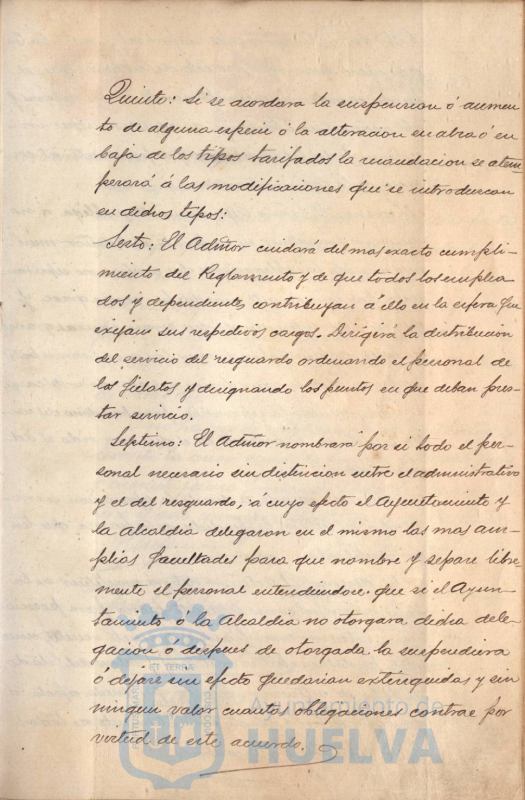 Quinto: Si se acordara la suspension ó aumen
to de alguna especie ó la alteracion en alza ó en
baja de los tipos tarifados la recaudacion se atem
perará á las modificaciones que se introduzcan
en dichos tipos:
Sesto: El Admor cuidará del mas exacto cumpli-
miento del Reglamento y de que todos los emplea
dos y dependientes contribuyan á ello en la esfera que
exijan sus respectivos cargos. Dirigirá la distribucion
del servicio del resguardo ordenando el personal de
los fielatos y designando los puntos en que deban pres
tar servicio.
Septimo: El Admor nombrará por si todo el per-
sonal necesario sin distincion entre el administrativo
y el del resguardo, á cuyo efecto el Ayuntamiento y
la Alcaldia delegaran en el mismo las mas am-
plias facultades para que nombre y separe libre-
mente el personal entendiendose que si el Ayun-
tamiento ó la Alcaldia no otorgara dicha dele-
gacion ó despues de otorgada la suspendiera
ó dejare sin efecto quedarian extinguidas y sin
ningun valor cuantas obligaciones contrae por
virtud de este acuerdo.
Ayuntamiento de
HUELVA